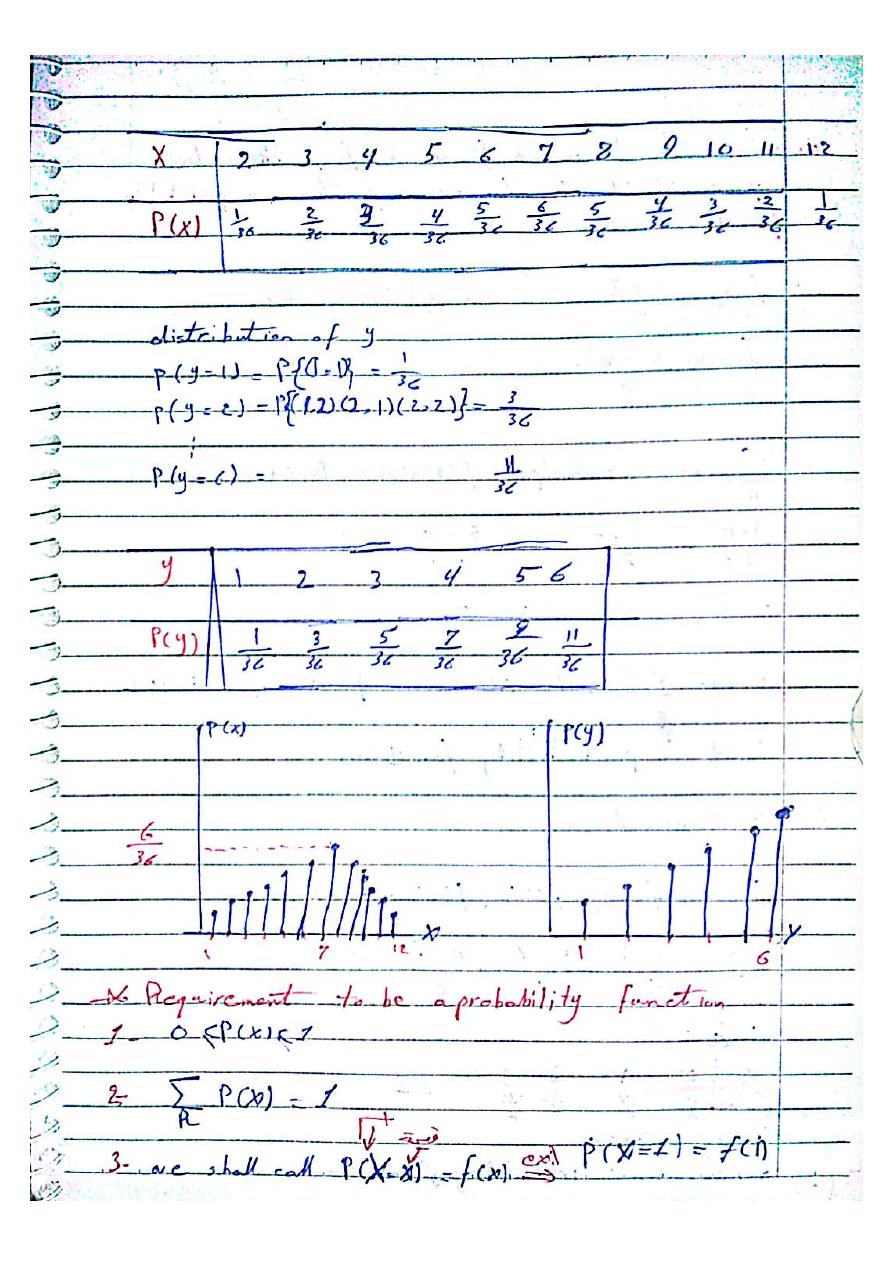 X 2 3 4 5 6 7 8 9 10 11 12
P(x) 1/36 2/36 3/36 4/36 5/36 6/36 5/36 4/36 3/36 2/36 1/36
distribution of y
P(y=1) = P{(1,1)} = 1/36
P(y=2) = P{(1,2)(2,1)(2,2)} = 3/36
⋮
P(y=6) = 11/36
y 1 2 3 4 5 6
P(y) 1/36 3/36 5/36 7/36 9/36 11/36
P(x) P(y)
6/36
X y
1 7 12 1 6
* Requirement to be a probability function
1- 0 ≤ P(x) ≤ 1
2- ∑ P(x) = 1
x
قيمة
3- we shall call P(X=x) = f(x) ex:1 ⇒ P(X=1) = f(1)